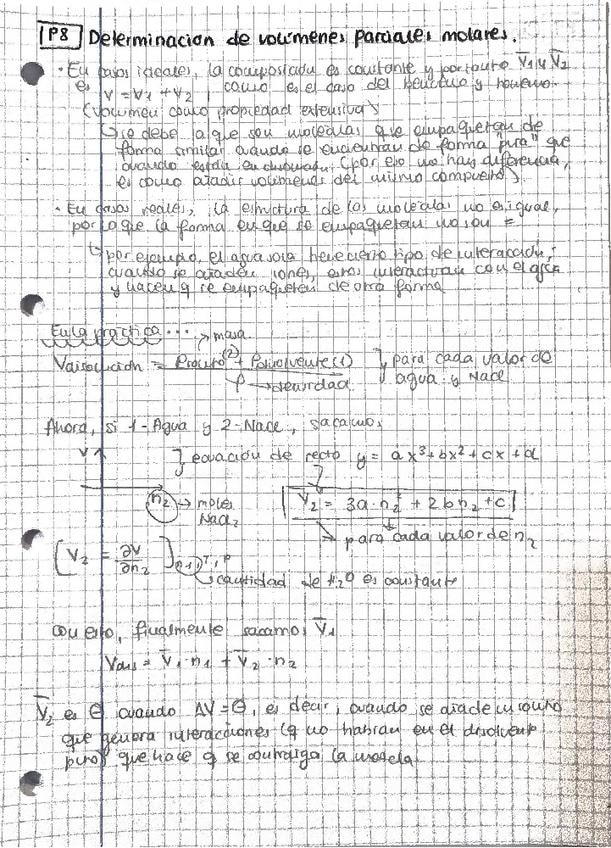 P8 Determinacion de volúmenes parciales molares.
· En casos ideales, la compostadu es constante y por tanto V̄1 y V̄2
es V = V1 + V2, como es el caso del benceno y
(volumen como propiedad extensiva)
↳ se debe a que son moléculas que empaquetan de
forma similar cuando se encuentran de forma "pura" que
cuando están en disolución (por eso no hay diferencia,
es como añadir volúmenes del mismo compuesto).
· En casos reales, la estructura de las moléculas no es igual,
por lo que la forma en que se empaquetan no son =
↳ por ejemplo, el agua sola tiene cierto tipo de interacción,
cuando se añaden iones, estos interactúan con el agua
y hacen q se empaqueten de otra forma
En la práctica ... → masa
Vdisolución = Psoluto(2) + Pdisolvente(1) / ρ → densidad } para cada valor de
agua y NaCl
Ahora, si 1-Agua y 2-NaCl, sacamos
V ↑ } ecuación de recta y = ax³ + bx² + cx + d
n2 → moles
NaCl2
V̄2 = 3a·n2² + 2bn2 + c
→ para cada valor de n2
(V2 = ∂V/∂n2) n1, T, P
↳ cantidad de H2O es constante
Con esto, finalmente sacamos V̄1
Vdis = V̄1·n1 + V̄2·n2
V̄2 es ⊖ cuando ΔV=⊖, es decir, cuando se añade un soluto
que genera interacciones (q no habían en el disolvente
puro) que hace q se contraiga la mezcla.